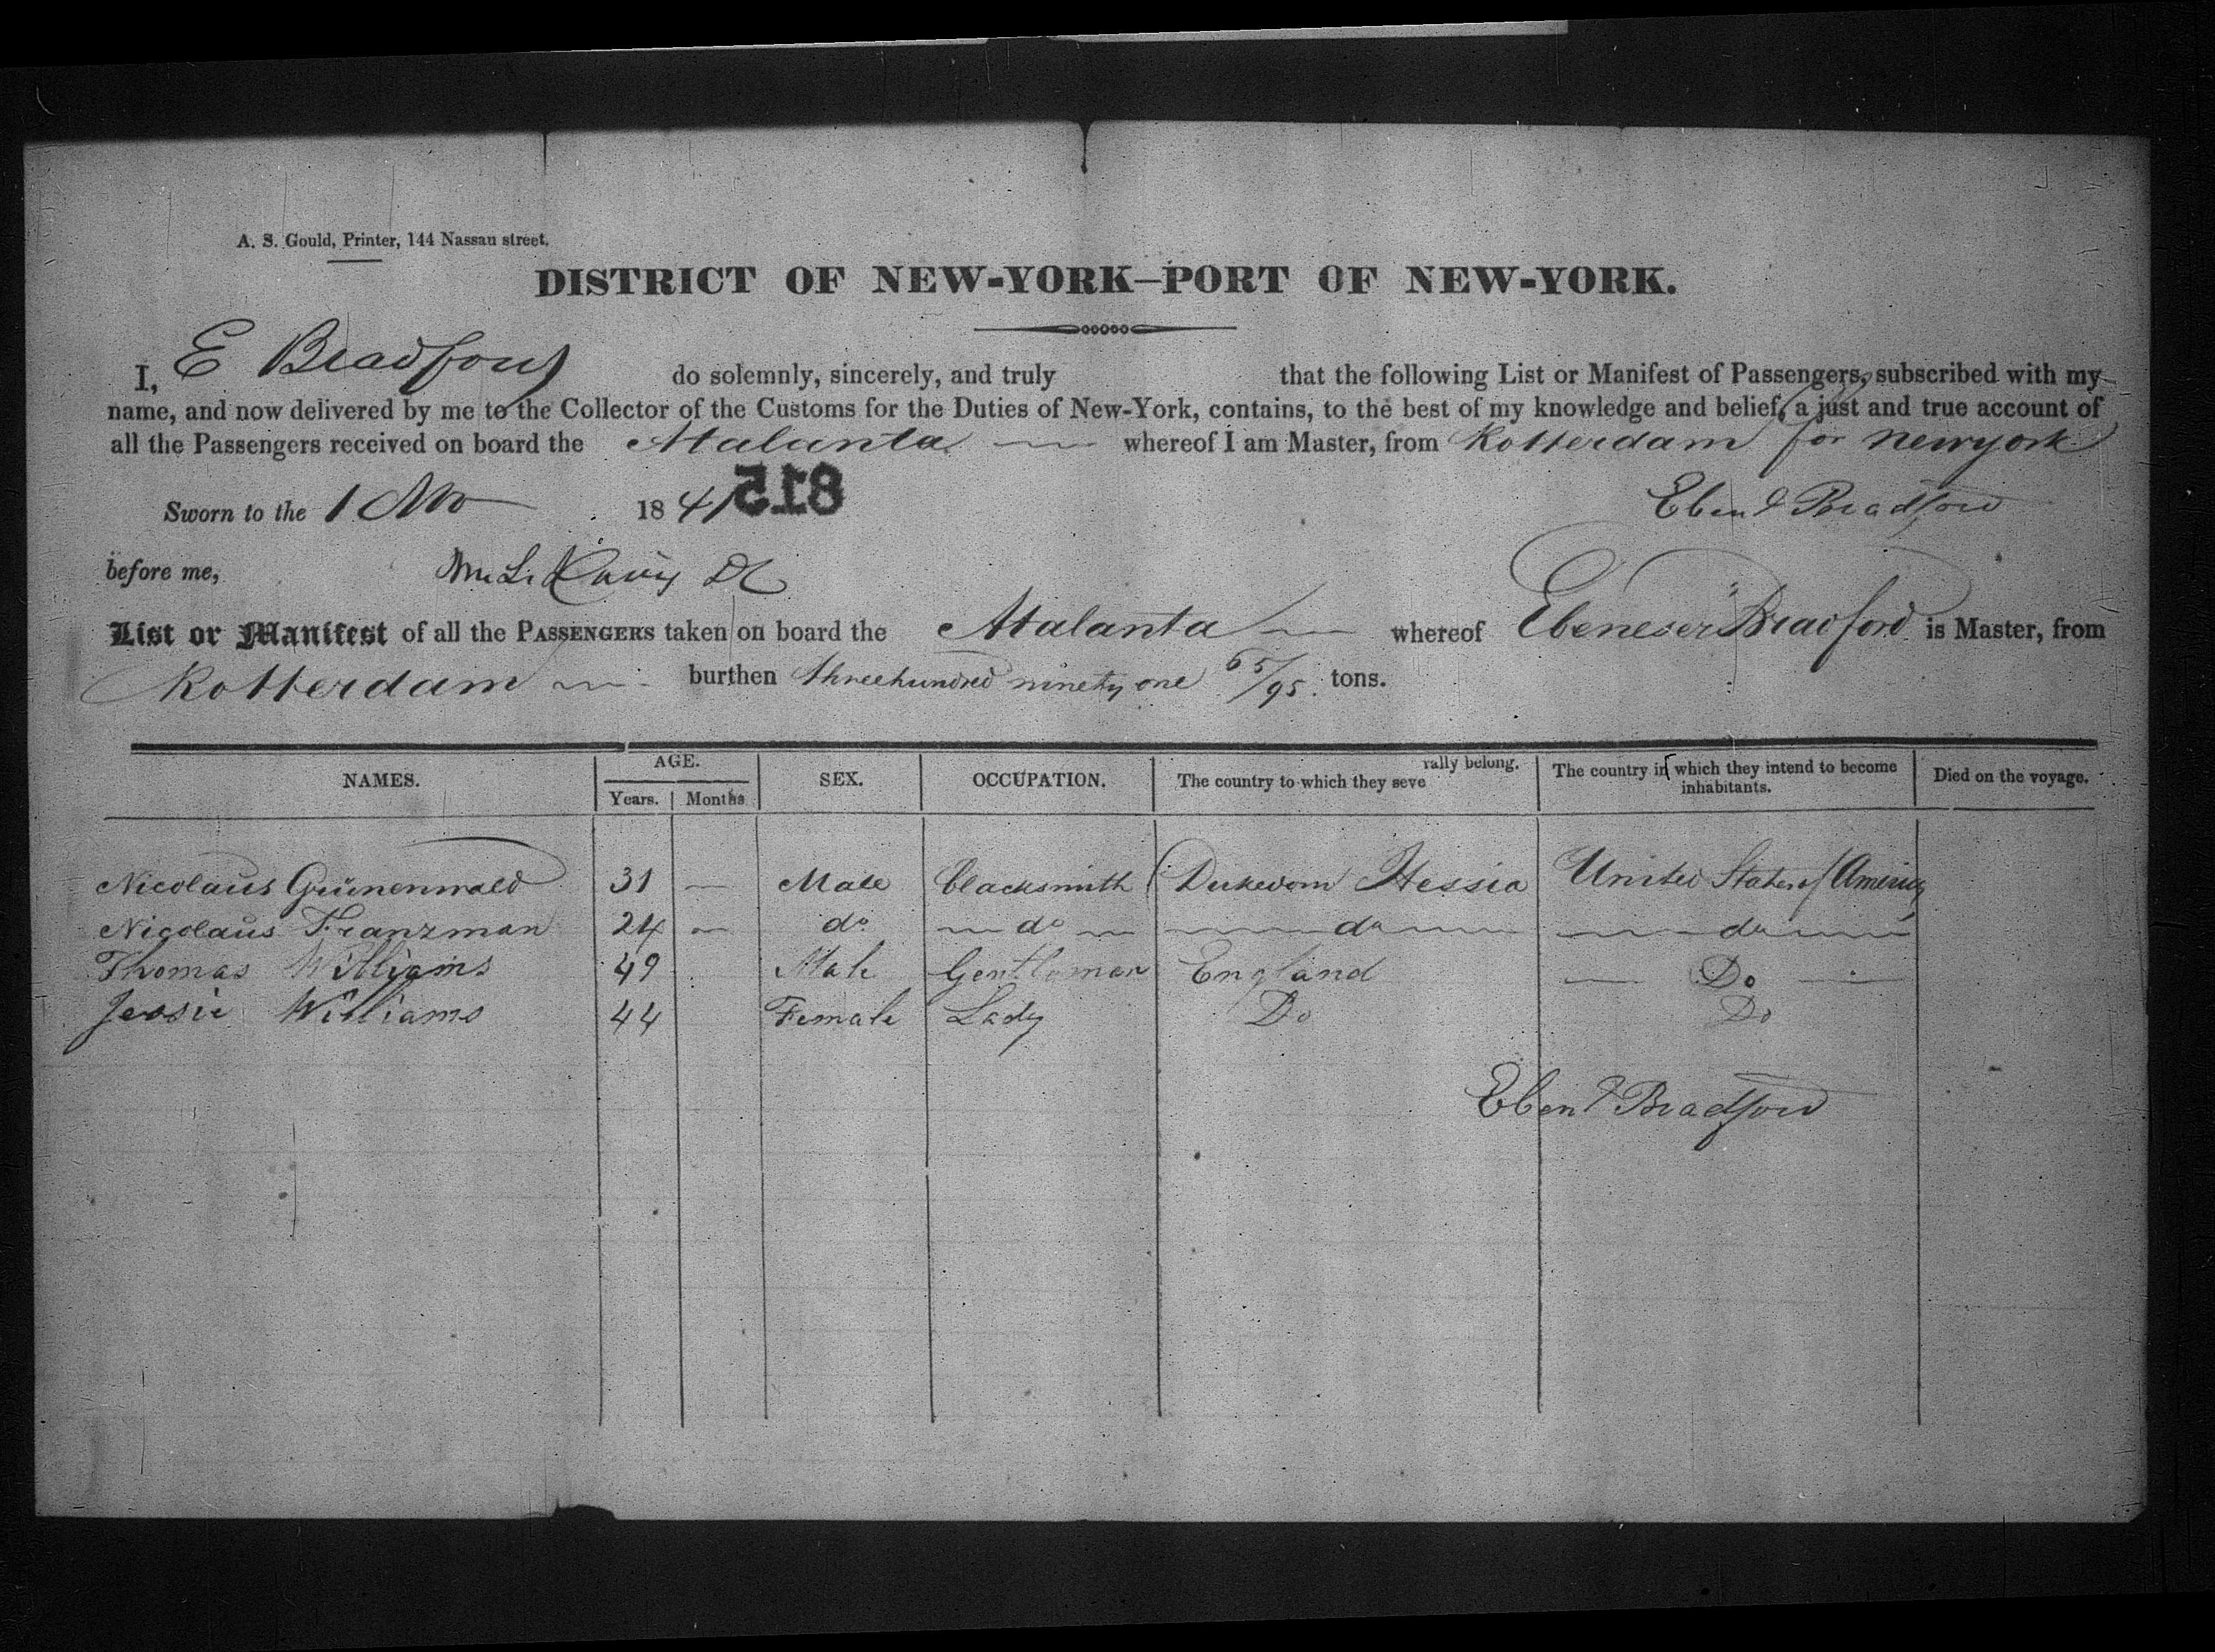 A. S. Gould, Printer, 144 Nassau street.
DISTRICT OF NEW-YORK—PORT OF NEW-YORK.
I, E Bradford do solemnly, sincerely, and truly that the following List or Manifest of Passengers, subscribed with my
name, and now delivered by me to the Collector of the Customs for the Duties of New-York, contains, to the best of my knowledge and belief, a just and true account of
all the Passengers received on board the Atalanta whereof I am Master, from Rotterdam for Newyork
Sworn to the 1 Nov 1841 815 Eben Bradford
before me,
List or Manifest of all the PASSENGERS taken on board the Atalanta whereof Ebeneser Bradford is Master, from
Rotterdam burthen threehundred ninety one 65/95 tons.
NAMES. AGE. Years. Months SEX. OCCUPATION. The country to which they severally belong. The country in which they intend to become inhabitants. Died on the voyage.
Nicolaus Grünenwald 31 — Male blacksmith Dukedom Hessia United States of America
Nicolaus Franzman 24 — do — do — — do — — do —
Thomas Williams 49 Male Gentleman England — Do —
Jessie Williams 44 Female Lady Do Do
Eben Bradford